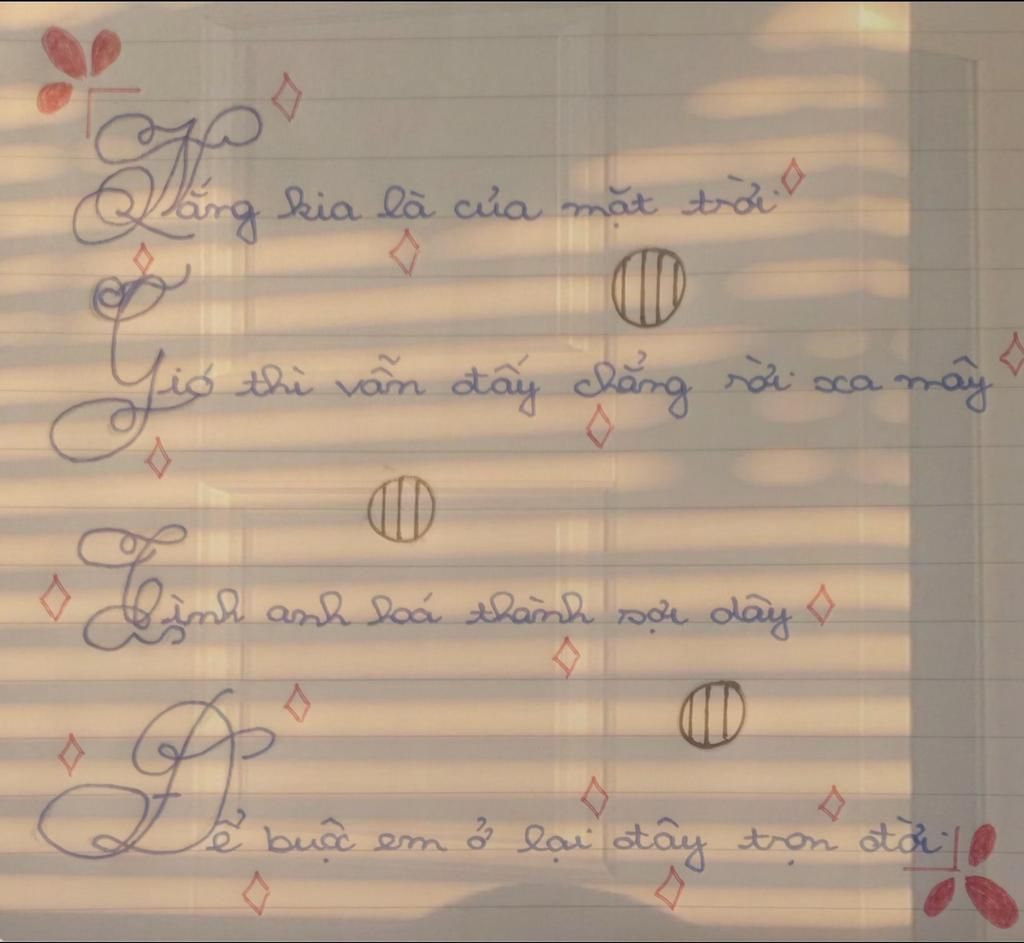 Nắng kia là của mặt trời
Gió thì vẫn đấy chẳng rời xa mây
Tình anh hoá thành sợi dây
Để buộc em ở lại đây trọn đời